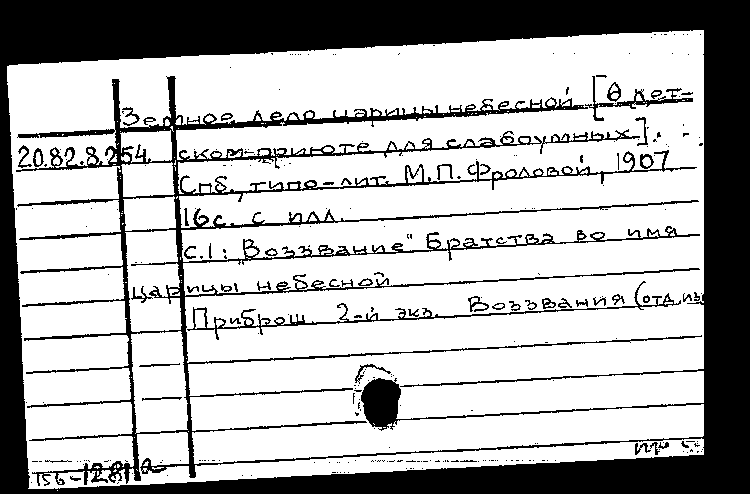 Земное дело царицы небесной [О дет-
20.82.8.254. ском приюте для слабоумных].
Спб., типо-лит. М.П.Фроловой, 1907
16с. с илл.
с.1: "Воззвание" Братства во имя
царицы небесной
Приброш. 2-й экз. Воззвания (отд.из
Т56-1281а